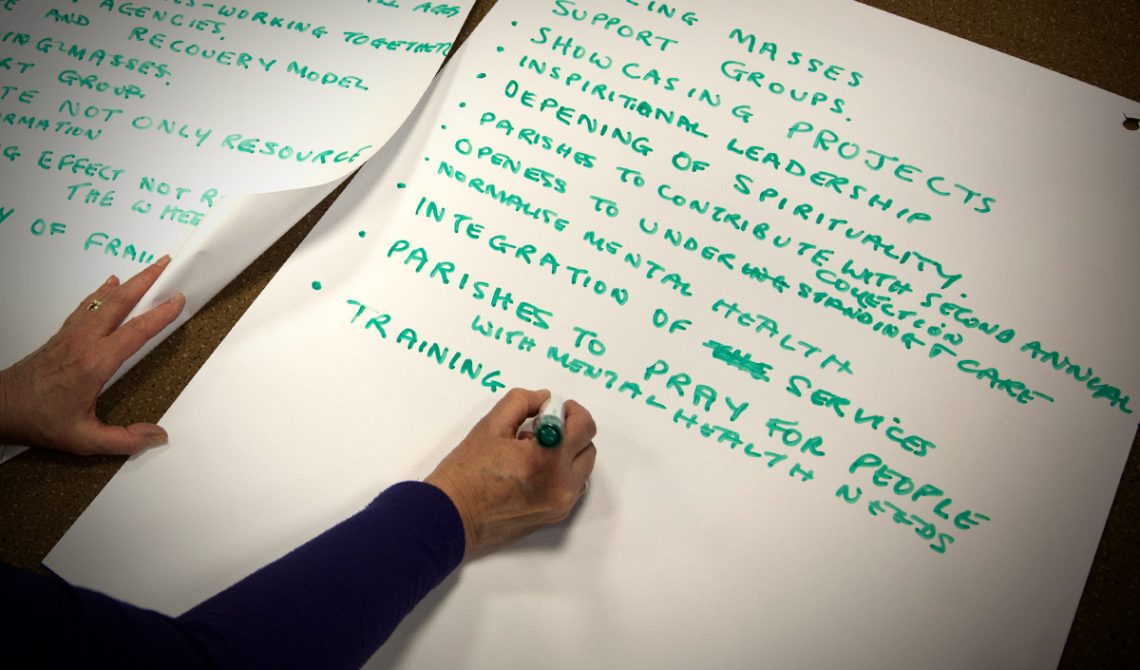 AGES
-WORKING TOGETHER
AGENCIES.
AND RECOVERY MODEL
MASSES.
GROUP.
NOT ONLY RESOURCE
EFFECT NOT
THE
OF
MASSES
SUPPORT GROUPS.
• SHOWCASING PROJECTS
• INSPIRITIONAL LEADERSHIP
• DEPENING OF SPIRITUALITY.
• PARISHES TO CONTRIBUTE WITH SECOND ANNUAL
COLLECTION
• OPENESS TO UNDERSTANDING & CARE
• NORMALISE MENTAL HEALTH
• INTEGRATION OF SERVICES
• PARISHES TO PRAY FOR PEOPLE
WITH MENTAL HEALTH NEEDS
• TRAINING